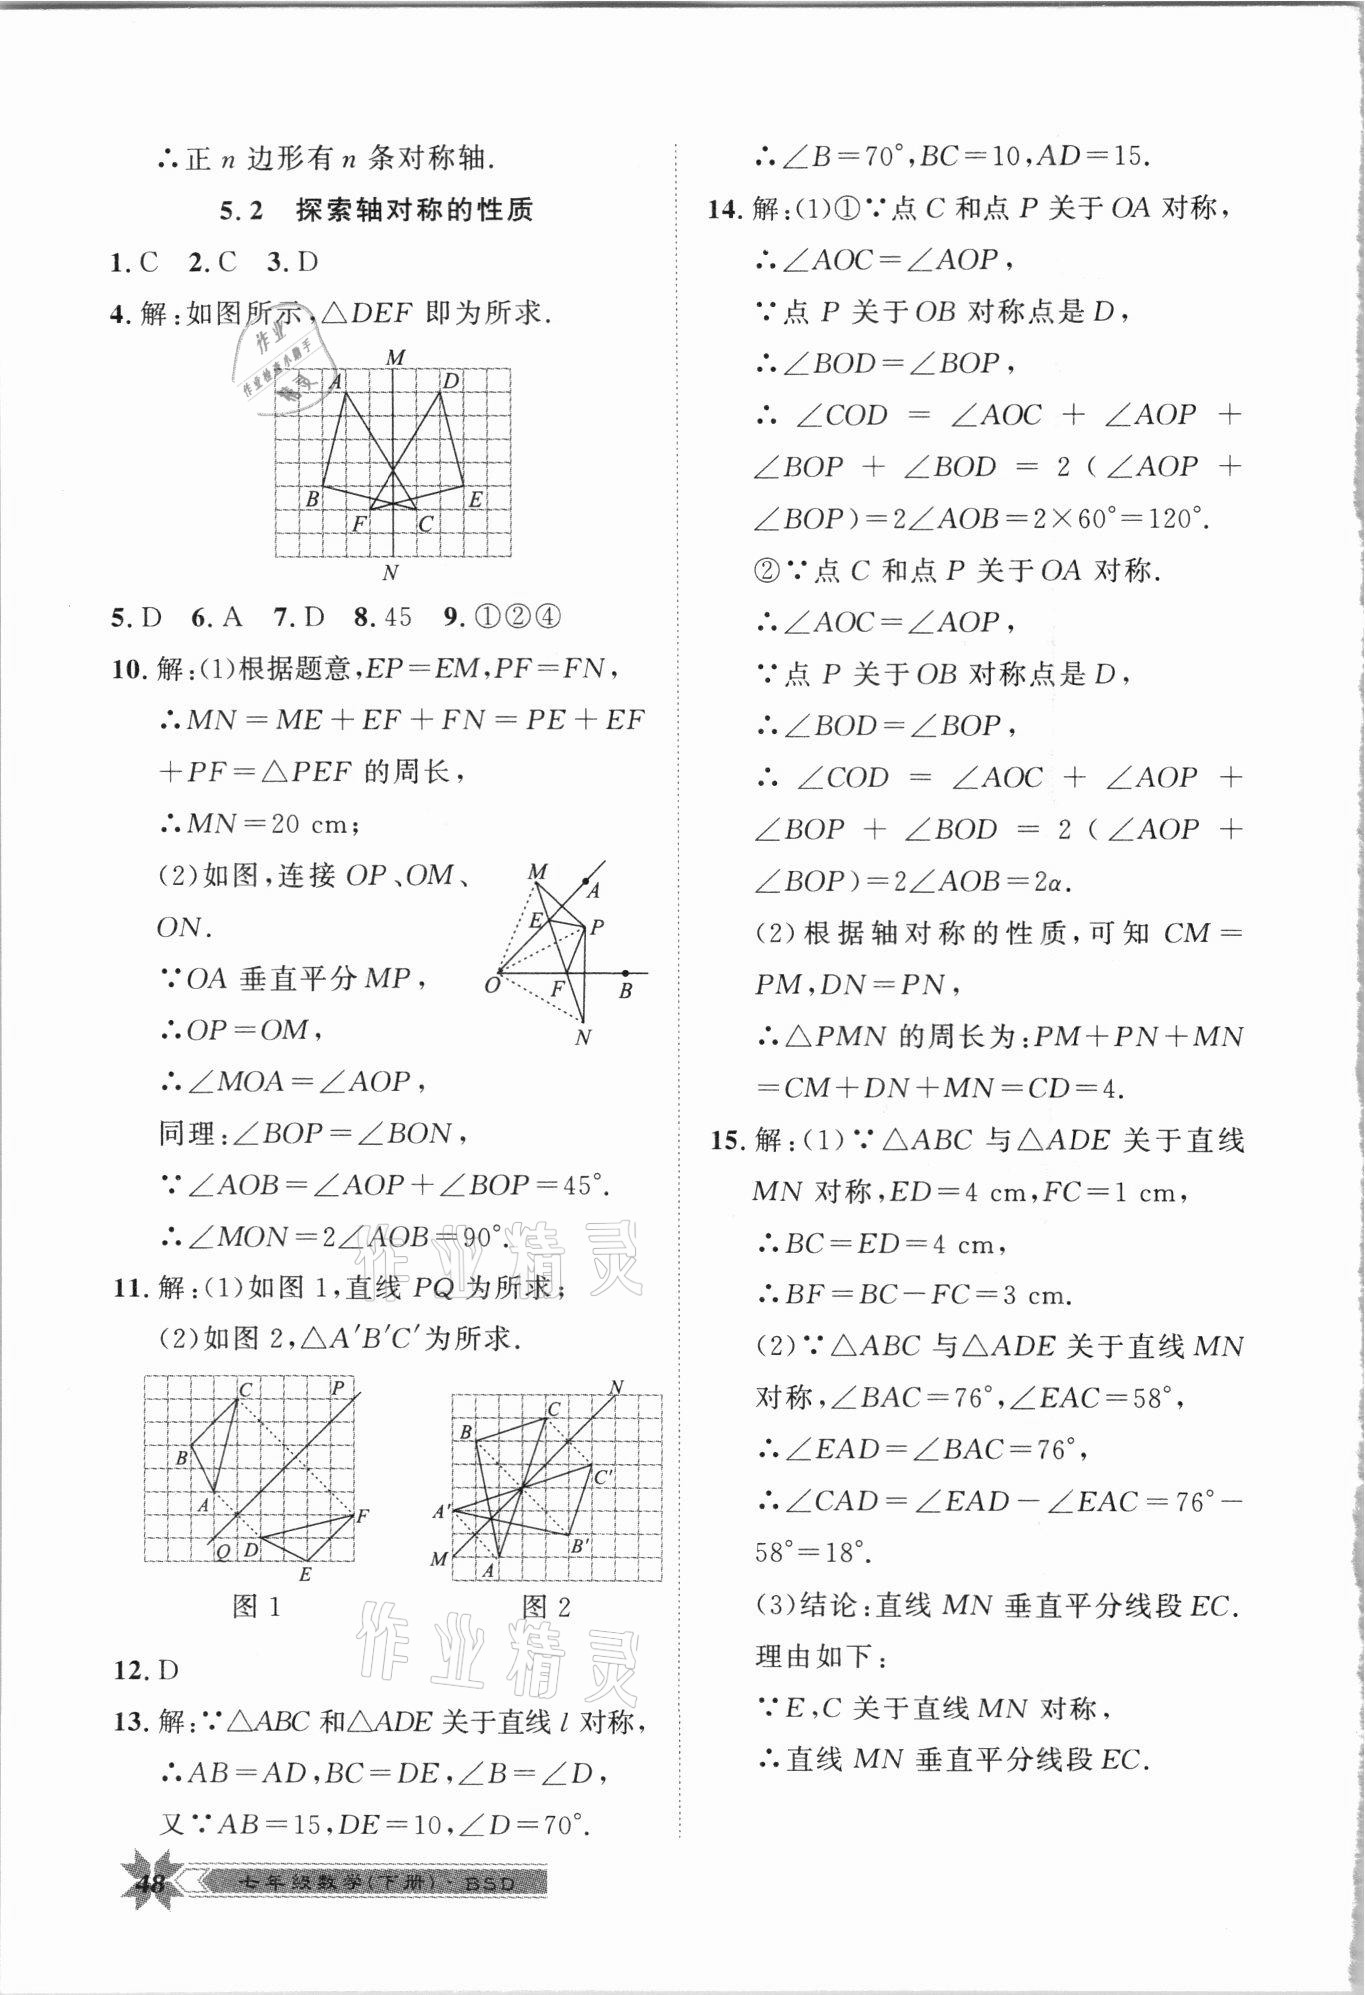 ∴正 n 边形有 n 条对称轴.
5.2 探索轴对称的性质
1. C 2. C 3. D
4. 解:如图所示,△DEF 即为所求.
M
A D
B E
F C
N
5. D 6. A 7. D 8. 45 9. ①②④
10. 解:(1)根据题意,EP=EM,PF=FN,
∴MN=ME+EF+FN=PE+EF
+PF=△PEF 的周长,
∴MN=20 cm;
(2)如图,连接 OP、OM、
ON.
∵OA 垂直平分 MP,
∴OP=OM,
∴∠MOA=∠AOP,
同理:∠BOP=∠BON,
∵∠AOB=∠AOP+∠BOP=45°.
∴∠MON=2∠AOB=90°.
M A
E P
O F B
N
11. 解:(1)如图 1,直线 PQ 为所求;
(2)如图 2,△A′B′C′为所求.
C P
B
A F
Q D
E
图 1
N
B C
C′
A′
B′
M A
图 2
12. D
13. 解:∵△ABC 和△ADE 关于直线 l 对称,
∴AB=AD,BC=DE,∠B=∠D,
又∵AB=15,DE=10,∠D=70°.
∴∠B=70°,BC=10,AD=15.
14. 解:(1)①∵点 C 和点 P 关于 OA 对称,
∴∠AOC=∠AOP,
∵点 P 关于 OB 对称点是 D,
∴∠BOD=∠BOP,
∴ ∠COD = ∠AOC + ∠AOP +
∠BOP + ∠BOD = 2 ( ∠AOP +
∠BOP)=2∠AOB=2×60°=120°.
②∵点 C 和点 P 关于 OA 对称.
∴∠AOC=∠AOP,
∵点 P 关于 OB 对称点是 D,
∴∠BOD=∠BOP,
∴ ∠COD = ∠AOC + ∠AOP +
∠BOP + ∠BOD = 2 ( ∠AOP +
∠BOP)=2∠AOB=2α.
(2)根据轴对称的性质,可知 CM=
PM,DN=PN,
∴△PMN 的周长为:PM+PN+MN
=CM+DN+MN=CD=4.
15. 解:(1)∵△ABC 与△ADE 关于直线
MN 对称,ED=4 cm,FC=1 cm,
∴BC=ED=4 cm,
∴BF=BC-FC=3 cm.
(2)∵△ABC 与△ADE 关于直线 MN
对称,∠BAC=76°,∠EAC=58°,
∴∠EAD=∠BAC=76°,
∴∠CAD=∠EAD-∠EAC=76°-
58°=18°.
(3)结论:直线 MN 垂直平分线段 EC.
理由如下:
∵E,C 关于直线 MN 对称,
∴直线 MN 垂直平分线段 EC.
48 七年级数学(下册)·BSD
作业
作业检查小助手
精灵
作业精灵
作业精灵